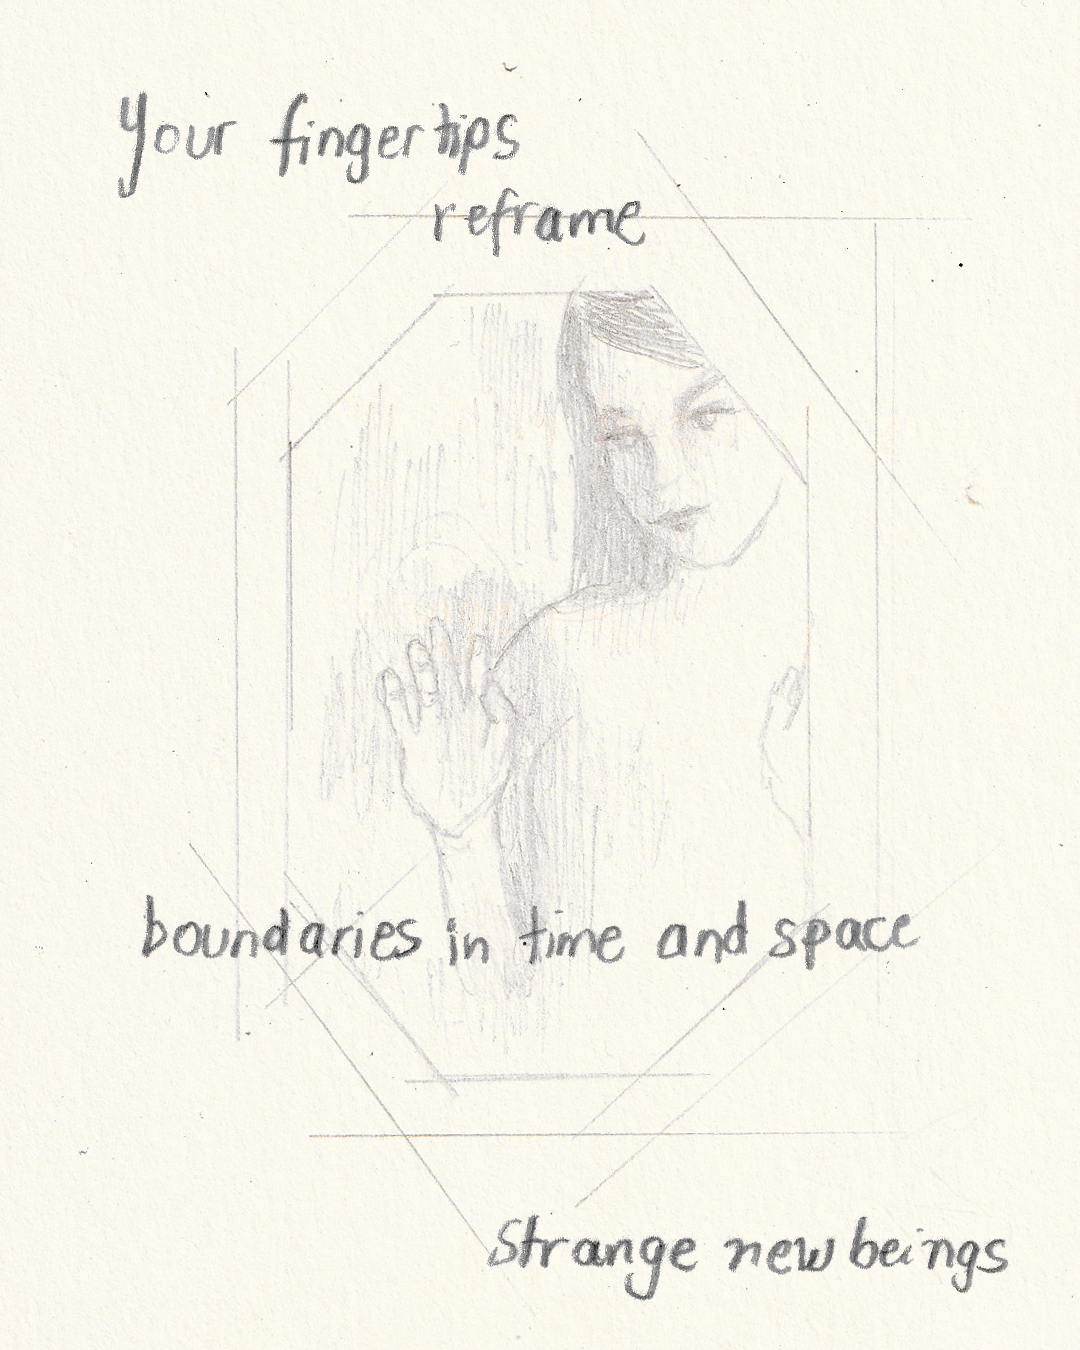 Your fingertips
reframe
boundaries in time and space
Strange new beings